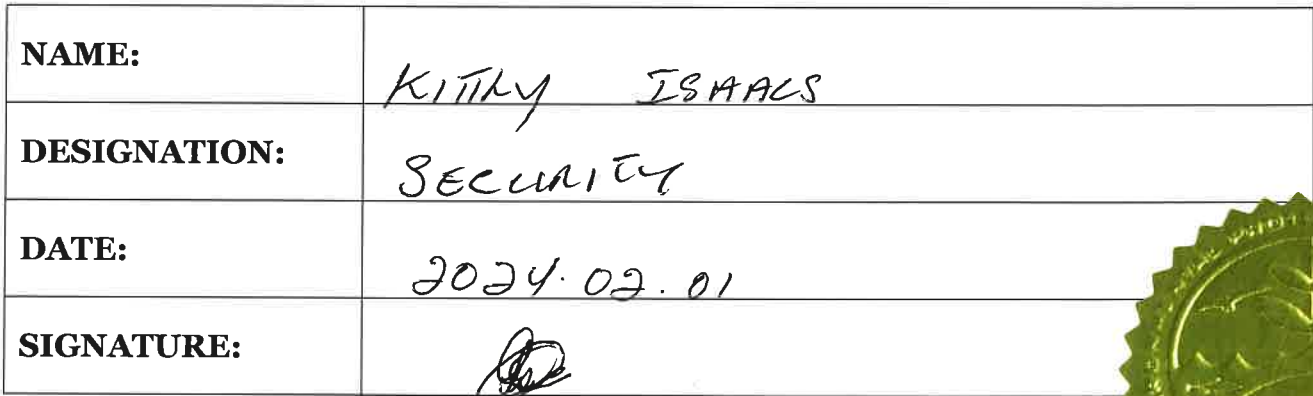 NAME: KITTLY ISAACS
DESIGNATION: SECURITY
DATE: 2024.02.01
SIGNATURE: